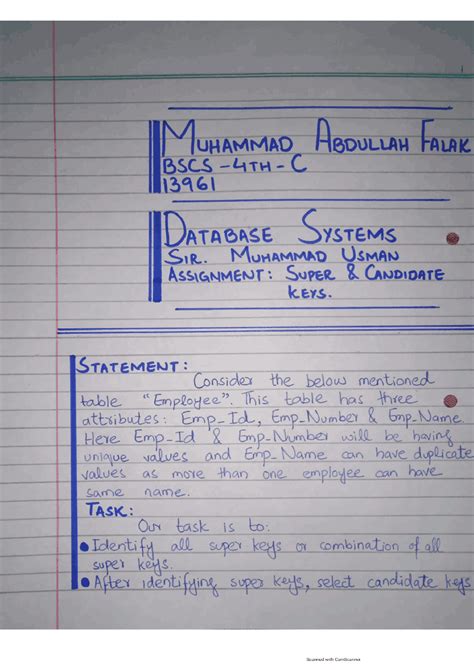 MUHAMMAD ABDULLAH FALAK
BSCS - 4TH - C
13961
DATABASE SYSTEMS
SIR. MUHAMMAD USMAN
ASSIGNMENT: SUPER & CANDIDATE
KEYS.
STATEMENT:
Consider the below mentioned
table "Employee". This table has three
attributes: Emp_Id, Emp_Number & Emp_Name.
Here Emp_Id & Emp_Number will be having
unique values and Emp_Name can have duplicate
values as more than one employee can have
same name.
TASK:
Our task is to:
• Identify all super keys or combination of all
super keys.
• After identifying super keys, select candidate keys
Scanned with CamScanner